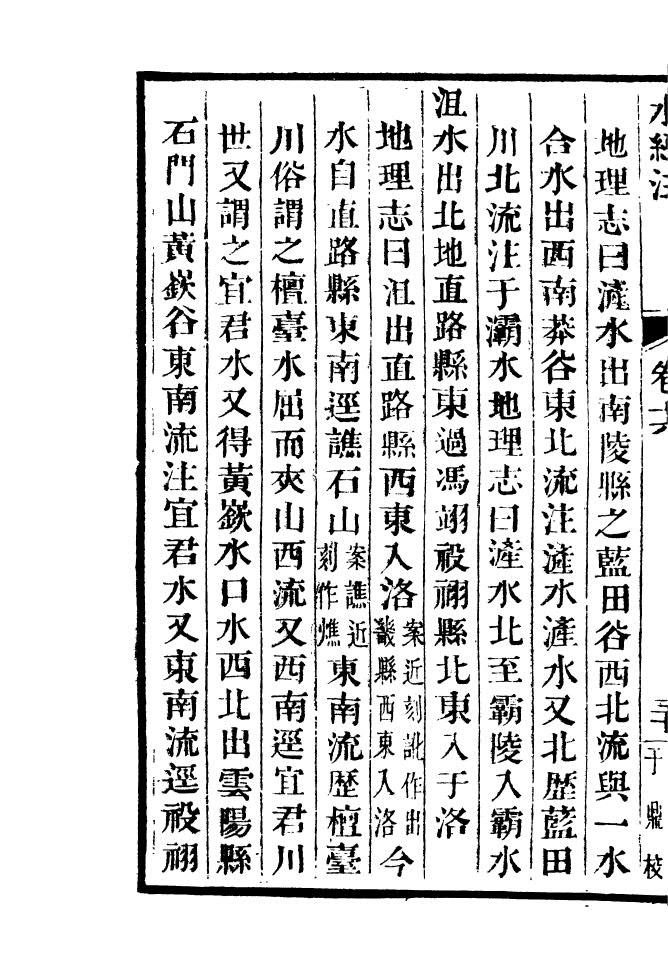 水經注 卷十六
地理志曰滻水出南陵縣之藍田谷西北流與一水
合水出西南莽谷東北流注滻水滻水又北歷藍田
川北流注于灞水地理志曰滻水北至霸陵入霸水
沮水出北地直路縣東過馮翊祋祤縣北東入于洛
地理志曰沮出直路縣西東入洛案近刻訛作出畿縣西東入洛今
水自直路縣東南逕譙石山案譙近刻作燋東南流歷檀臺
川俗謂之檀臺水屈而夾山西流又西南逕宜君川
世又謂之宜君水又得黃嶔水口水西北出雲陽縣
石門山黃嶔谷東南流注宜君水又東南流逕祋祤